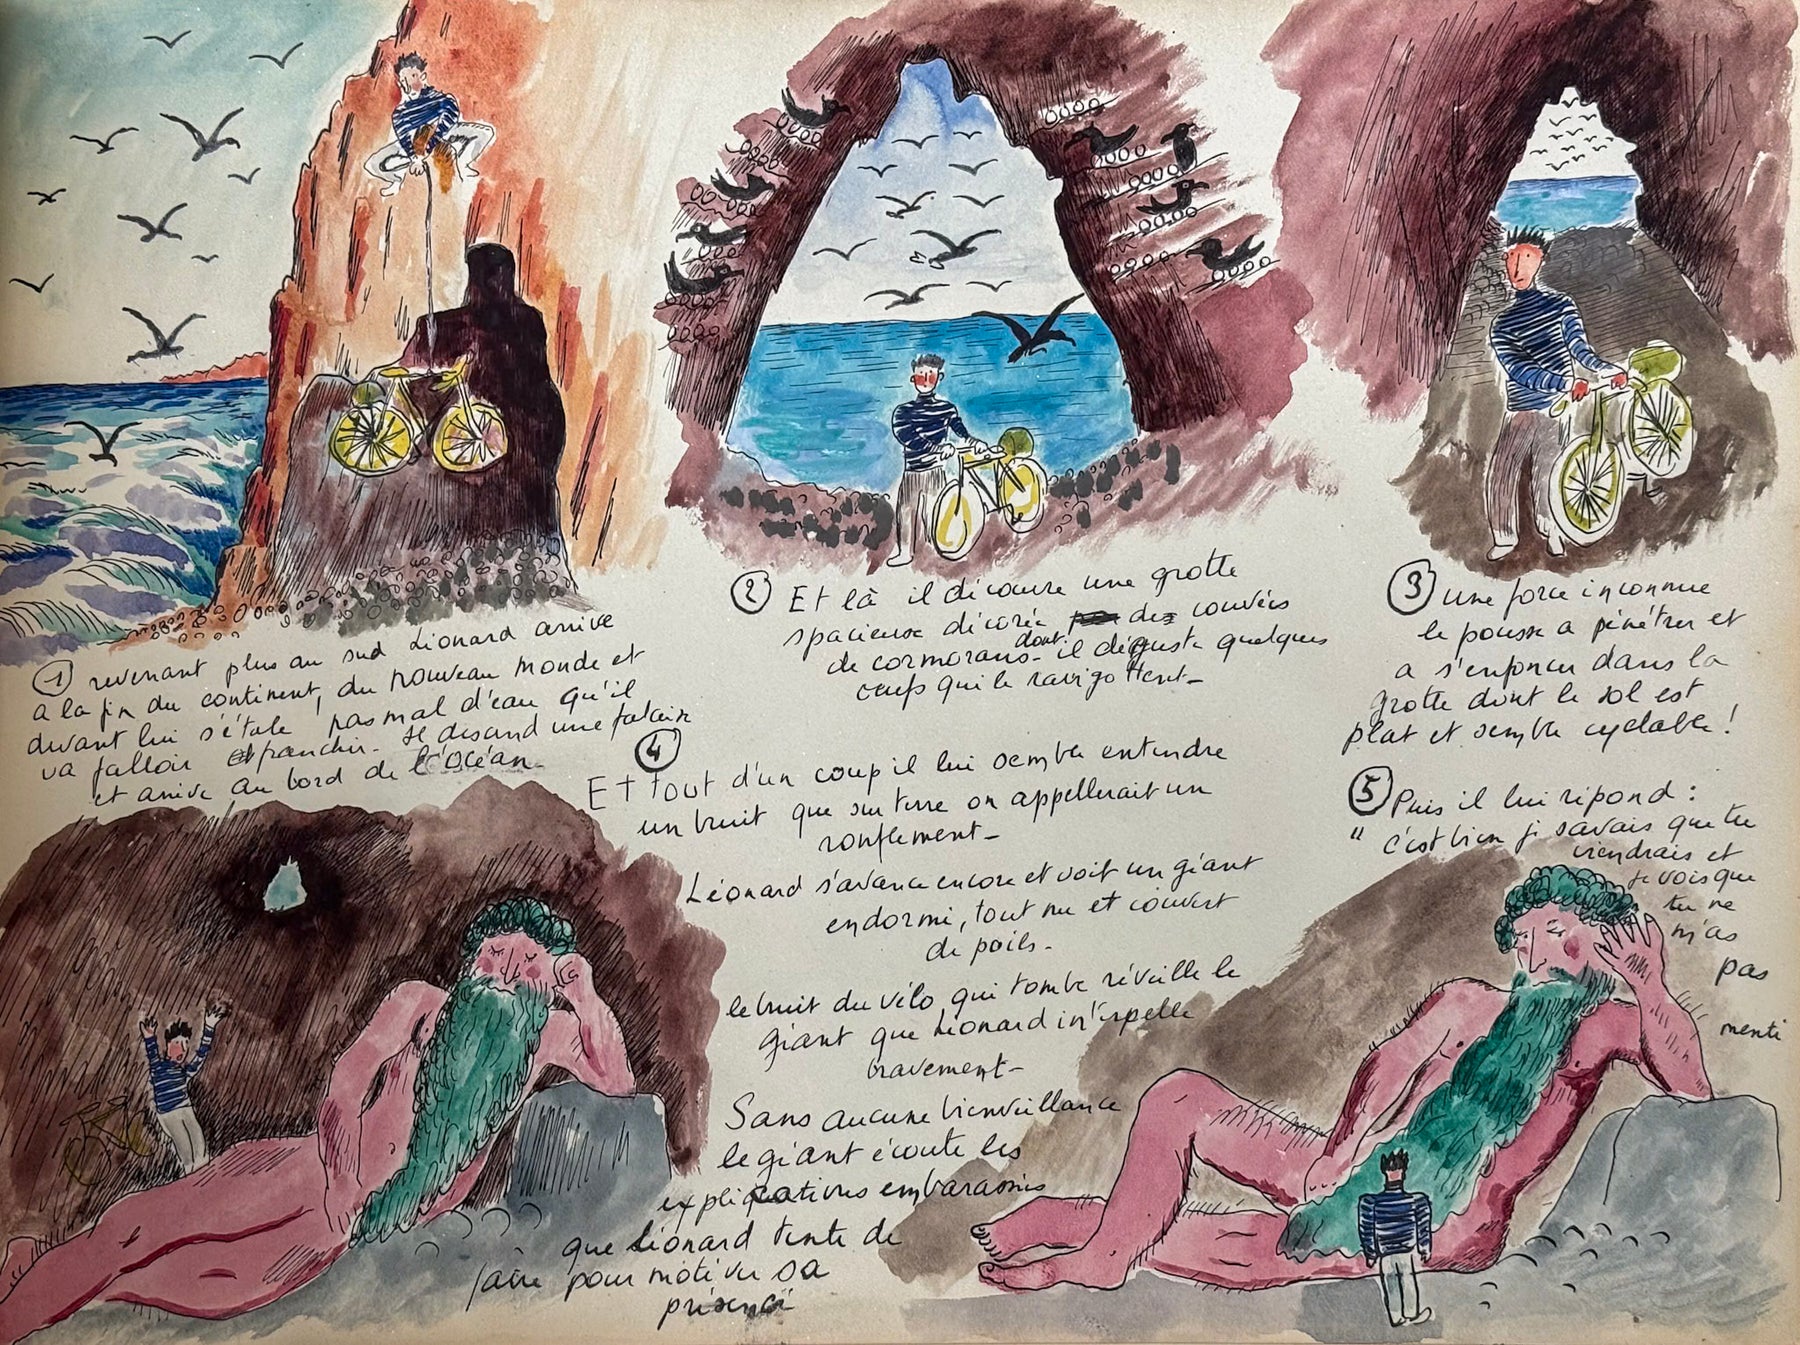 ① revenant plus au sud Léonard arrive
a la fin du continent, du nouveau monde et
devant lui s'étale pas mal d'eau qu'il
va falloir franchir. Il descend une falaise
et arrive au bord de l'océan_
② Et là il découvre une grotte
spacieuse décorée des couvées
de cormorans_ dont il déguste quelques
oeufs qui le ravigottent_
③ une force inconnue
le pousse a pénétrer et
a s'enfoncer dans la
grotte dont le sol est
plat et semble cyclable !
④
Et tout d'un coup il lui semble entendre
un bruit que sur terre on appellerait un
ronflement_
Léonard s'avance encore et voit un géant
endormi, tout nu et couvert
de poils_
le bruit du vélo qui tombe réveille le
géant que Léonard interpelle
bravement_
Sans aucune bienveillance
le géant écoute les
explicatives embarassés
que Léonard tente de
faire pour motiver sa
présence
⑤ Puis il lui répond :
" c'est bien je savais que tu
viendrais et
je vois que
tu ne
m'as
pas
menti